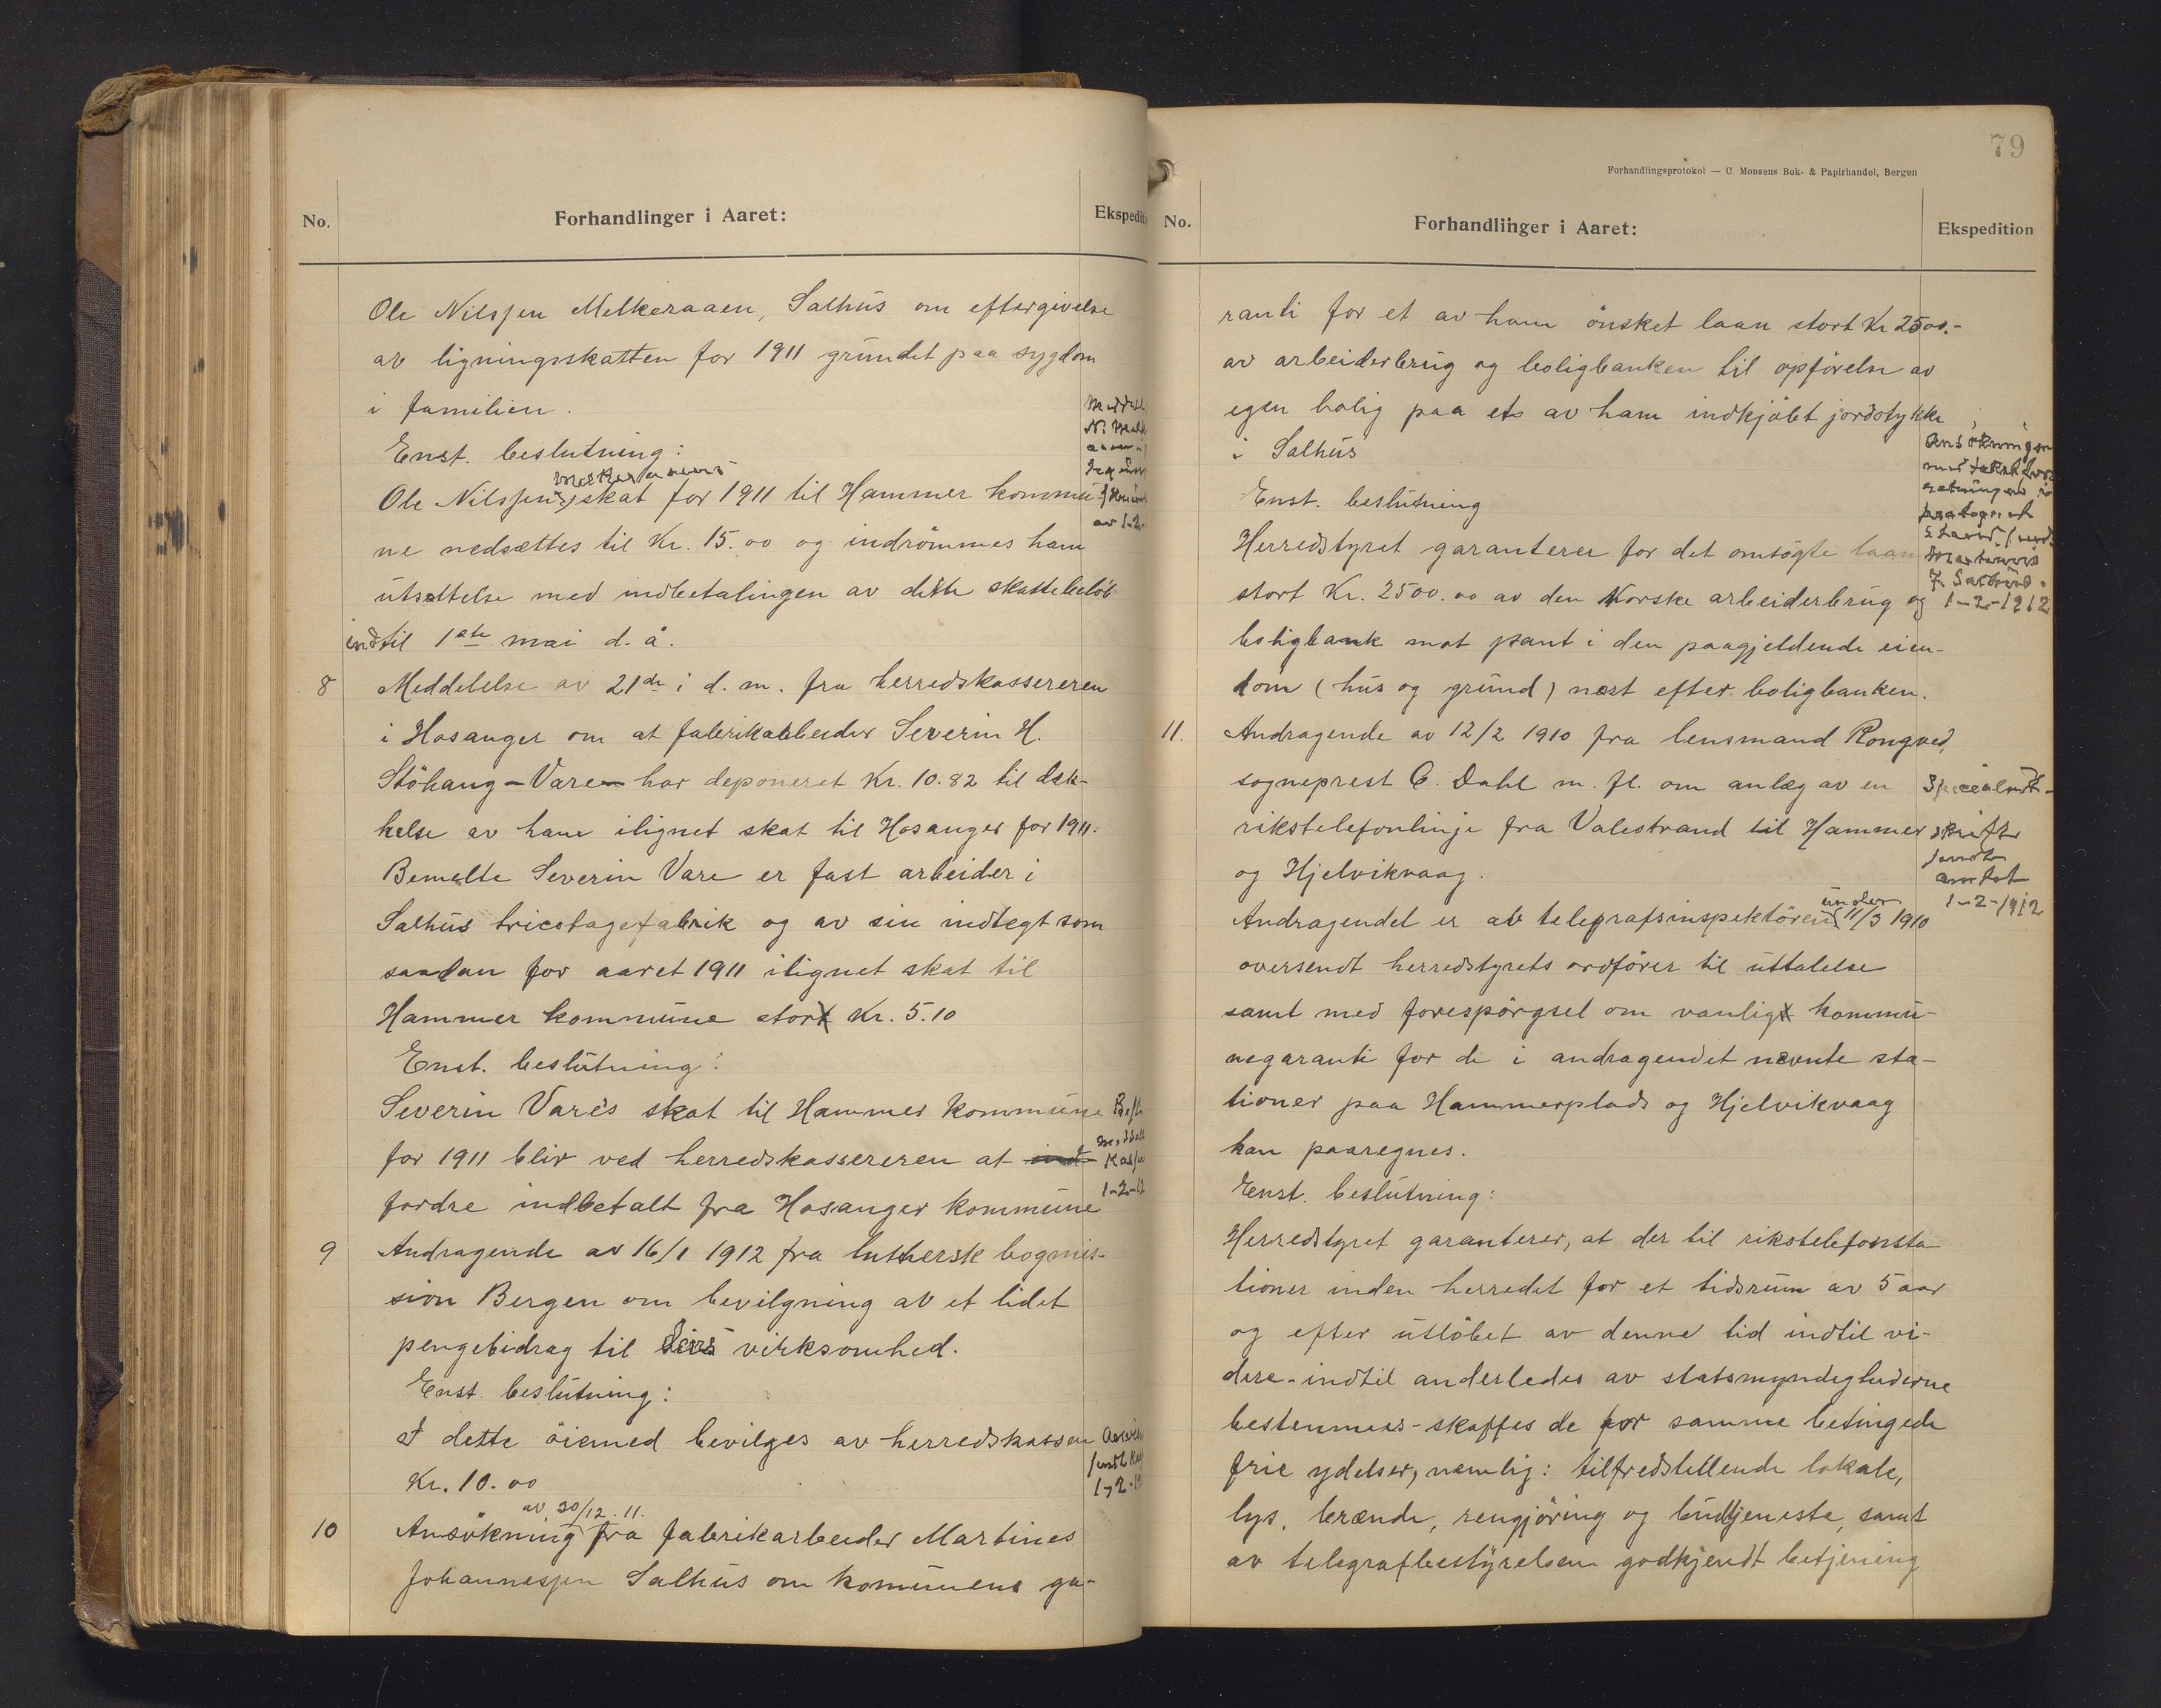 No.
Forhandlinger i Aaret:
Ekspediti
Ole Nilssen Melkeraaen, Salhus om eftergivelse
av ligningsskatten for 1911 grundet paa sygdom
i familien.
Enst. beslutning:
Melkeraaens
Ole Nilssens skat for 1911 til Hammer kommu-
ne nedsættes til Kr. 15.00 og indrömmes ham
utsættelse med indbetalingen av dette skattebelöb
indtil 1ste mai d. å.
av 1-2-
8 Meddelelse av 21de i d. m. fra herredskassereren
i Hosanger om at fabrikarbeider Severin H.
Stöhaug - Vare har deponeret Kr. 10.82 til dæk-
kelse av ham ilignet skat til Hosanger for 1911.
Bemelte Severin Vare er fast arbeider i
Salhus tricotagefabrik og av sin indtegt som
saadan for aaret 1911 ilignet skat til
Hammer kommune stor Kr. 5.10
Enst. beslutning:
Severin Vares skat til Hammer kommune
for 1911 blir ved herredskassereren at ind
fordre indbetalt fra Hosanger kommune
1-2-
9 Andragende av 16/1 1912 fra luthersk bogmis-
sion Bergen om bevilgning av et lidet
pengebidrag til virksomhed.
Enst. beslutning:
I dette öiemed bevilges av herredskassen
Kr. 10.00
1-2-
av 30/12. 11.
10 Ansökning fra fabrikarbeider Martines
Johannessen Salhus om kommunens ga-
79
Forhandlingsprotokol — C. Monsens Bok- & Papirhandel, Bergen
No.
Forhandlinger i Aaret:
Ekspedition
ranti for et av ham önsket laan stort Kr 2500.-
av arbeiderbrug og boligbanken til opförelse av
egen bolig paa et av ham indkjöbt jordstykke
i Salhus
Enst. beslutning
Herredstyret garanterer for det omsögte laan
stort Kr. 2500.00 av den Norske arbeiderbrug og
boligbank mot pant i den paagjeldende eien-
dom (hus og grund) næst efter boligbanken.
Ansökningen
med
Salhus.
1-2-1912
11. Andragende av 12/2 1910 fra lensmand Rongved,
sogneprest C. Dahl m. fl. om anlæg av en
rikstelefonlinje fra Valestrand til Hammer
og Hjelvikvaag.
Specialut-
skrift
sendt
amtet
1-2-1912
under
Andragendet er av telegrafsinspektören 11/3 1910
oversendt herredstyrets ordförer til uttalelse
samt med forespörgsel om vanlig kommu-
negaranti for de i andragendet nevnte sta-
tioner paa Hammerplads og Hjelvikvaag
kan paaregnes.
Enst. beslutning:
Herredstyret garanterer, at der til rikstelefonsta-
tioner inden herredet for et tidsrum av 5 aar
og efter utlöbet av denne tid indtil vi-
dere - indtil anderledes av statsmyndigheterne
bestemmes - skaffes de for samme betingede
frie ydelser, nemlig: tilfredstillende lokale,
lys, brænde, rengjöring og budtjeneste, samt
av telegrafbestyrelsen godkjendt betjening